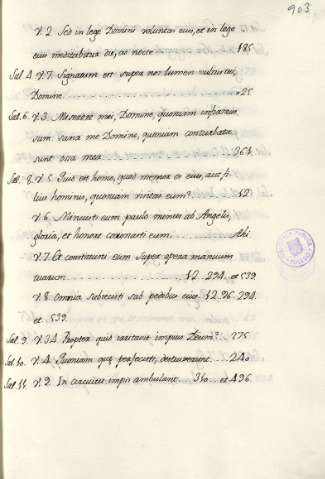 903
v. 2. Sed in lege Domini voluntas eius, et in lege
eius meditabitur die, ac nocte 185.
Sal. 4. v. 7. Signatum est supra nos lumen vultus tui,
Domine 25
Sal. 6. v. 3. Miserere mei, Domine, quoniam infirmus
sum: sana me Domine, quoniam conturbata
sunt ossa mea 264.
Sal. 8. v. 5. Quis est homo, quod memor es eius, aut fi-
lius hominis, quoniam visitas eum? 12
v. 6. Minuisti eum paulo minus ab Angelis,
gloria, et honore coronasti eum. Ibi
v. 7. Et constituisti eum super opera manuum
tuarum 12. 294. et 539
v. 8. Omnia subiecisti sub pedibus eius. 12. 96. 294.
et 539.
Sal. 9. v. 34. Propter quid irritavit impius Deum? 275
Sal. 10. v. 4. Quoniam quę perfecisti, destruxerunt. 240
Sal. 11. v. 9. In circuitu impii ambulant. 310 et 496.